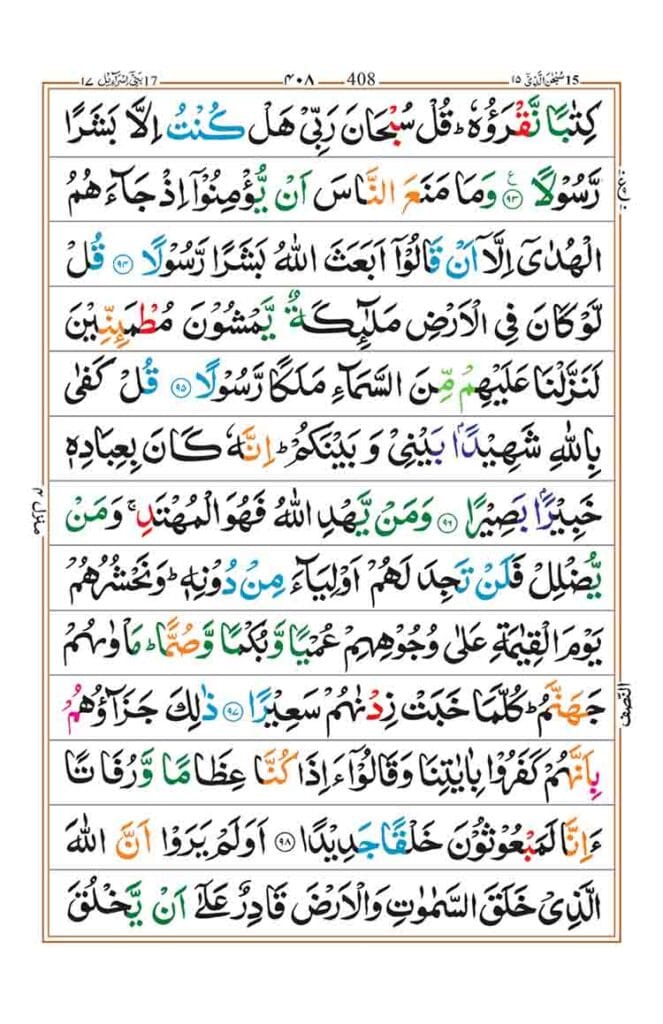 15 سُبْحٰنَ الَّذِیْ ١٥ 408 ٤٠٨ 17 بَنِیْۤ اِسْرَآءِیْل ١٧
كِتٰبًا نَّقْرَؤُهٗ ؕ قُلْ سُبْحَانَ رَبِّیْ هَلْ كُنْتُ اِلَّا بَشَرًا
رَّسُوْلًا ﴿٩٣﴾ وَمَا مَنَعَ النَّاسَ اَنْ یُّؤْمِنُوْۤا اِذْ جَآءَهُمُ
الْهُدٰۤی اِلَّاۤ اَنْ قَالُوْۤا اَبَعَثَ اللّٰهُ بَشَرًا رَّسُوْلًا ﴿٩٤﴾ قُلْ
لَّوْ كَانَ فِی الْاَرْضِ مَلٰٓىِٕكَةٌ یَّمْشُوْنَ مُطْمَىِٕنِّیْنَ
لَنَزَّلْنَا عَلَیْهِمْ مِّنَ السَّمَآءِ مَلَكًا رَّسُوْلًا ﴿٩٥﴾ قُلْ كَفٰی
بِاللّٰهِ شَهِیْدًۢا بَیْنِیْ وَ بَیْنَكُمْ ؕ اِنَّهٗ كَانَ بِعِبَادِهٖ
خَبِیْرًۢا بَصِیْرًا ﴿٩٦﴾ وَمَنْ یَّهْدِ اللّٰهُ فَهُوَ الْمُهْتَدِ ۚ وَمَنْ
یُّضْلِلْ فَلَنْ تَجِدَ لَهُمْ اَوْلِیَآءَ مِنْ دُوْنِهٖ ؕ وَنَحْشُرُهُمْ
یَوْمَ الْقِیٰمَةِ عَلٰی وُجُوْهِهِمْ عُمْیًا وَّبُكْمًا وَّصُمًّا ؕ مَاْوٰىهُمْ
جَهَنَّمُ ؕ كُلَّمَا خَبَتْ زِدْنٰهُمْ سَعِیْرًا ﴿٩٧﴾ ذٰلِكَ جَزَآؤُهُمْ
بِاَنَّهُمْ كَفَرُوْا بِاٰیٰتِنَا وَقَالُوْۤا ءَاِذَا كُنَّا عِظَامًا وَّرُفَاتًا
ءَاِنَّا لَمَبْعُوْثُوْنَ خَلْقًا جَدِیْدًا ﴿٩٨﴾ اَوَلَمْ یَرَوْا اَنَّ اللّٰهَ
الَّذِیْ خَلَقَ السَّمٰوٰتِ وَالْاَرْضَ قَادِرٌ عَلٰۤی اَنْ یَّخْلُقَ
منزل ٤
النصف